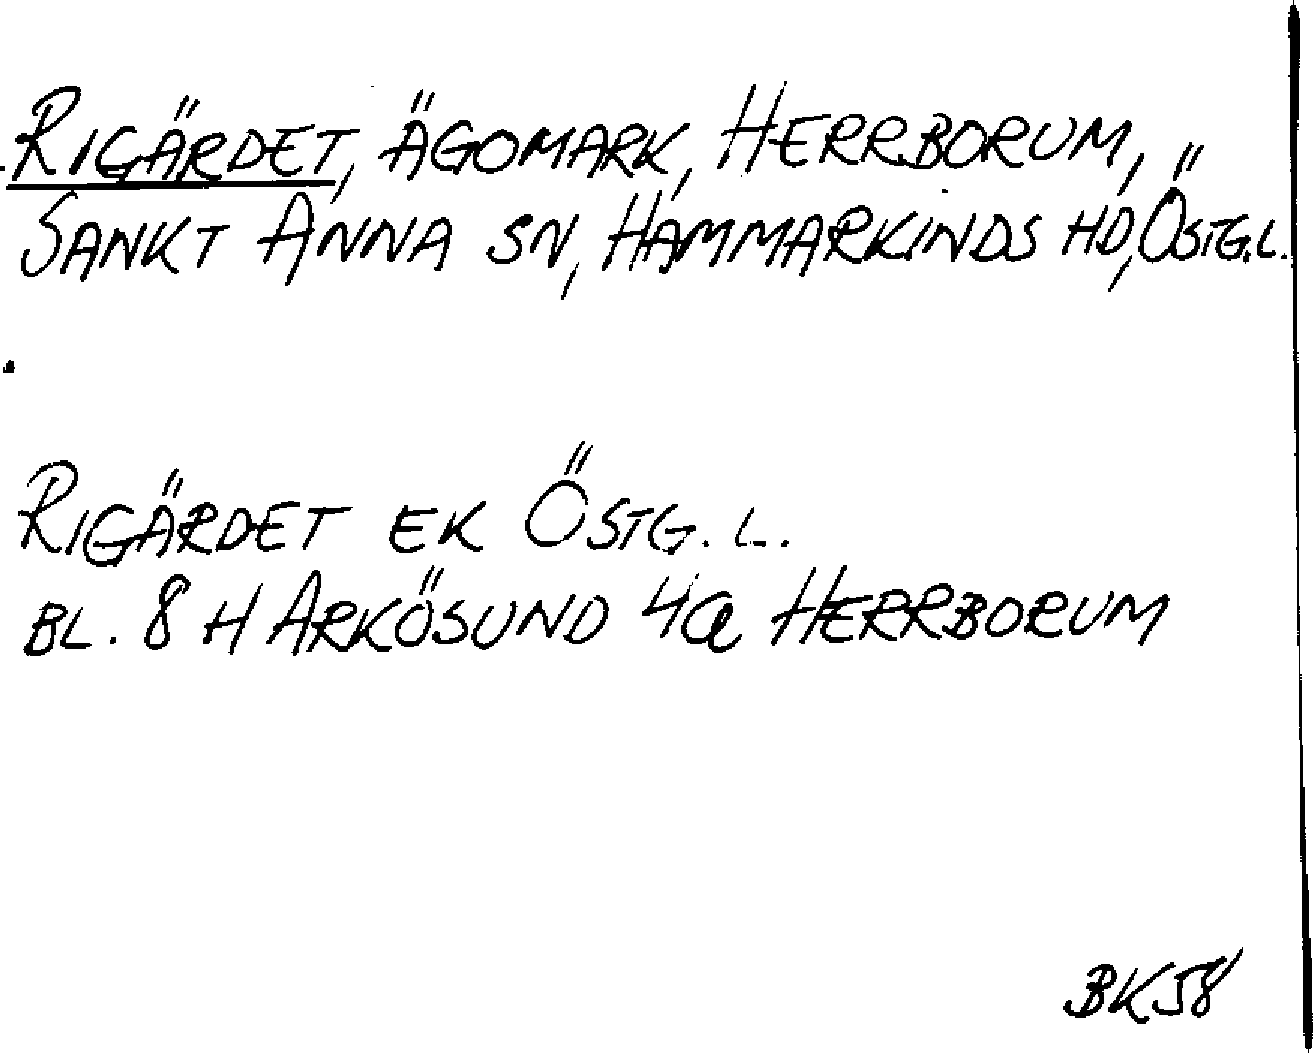 RIGÄRDET, ÄGOMARK, HERRBORUM,
SANKT ANNA SN, HAMMARKINDS HD, ÖSTG.L.
RIGÄRDET EK ÖSTG. L.
BL. 8 H ARKÖSUND 4a HERRBORUM
BK58